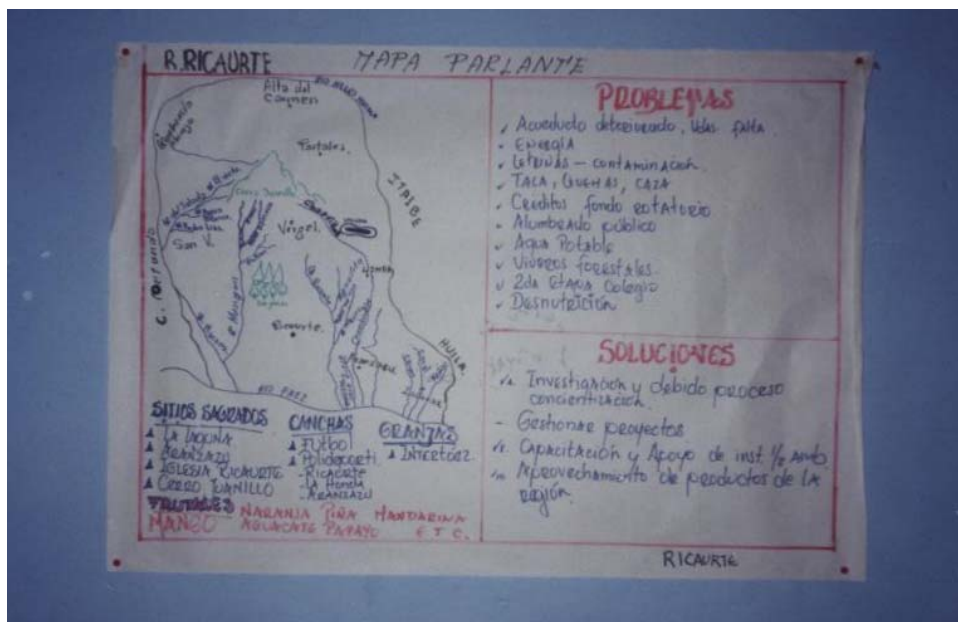 R. RICAURTE
MAPA PARLANTE
Alto del
Carmen
Portales.
ITAIBE
Cerro Juanillo
Virgel.
San
Ricaurte.
HUILA.
RIO PAEZ
SITIOS SAGRADOS
LA LAGUNA
ARANZAZU
IGLESIA RICAURTE
CERRO JUANILLO
CANCHAS
FUTBOL
Polideporti.
- RICAURTE
- LA HONDA
- ARANZAZU
GRANJAS
INTERTORZ.
FRUTALES
MANGO NARANJA PIÑA MANDARINA
AGUACATE PAPAYO ETC.
PROBLEMAS
Acueducto deteriorado, falta.
ENERGÍA
LETRINAS - contaminacion.
TALA, QUEMAS, CAZA
Creditos fondo rotatorio
Alumbrado público
Agua Potable
Viveros forestales.
2da Etapa Colegio
Desnutrición
SOLUCIONES
Investigacion y debido proceso
concientizacion.
- Gestionar proyectos
Capacitación y Apoyo de inst. 1/2 Amb.
Aprovechamiento de productos de la
Región.
RICAURTE